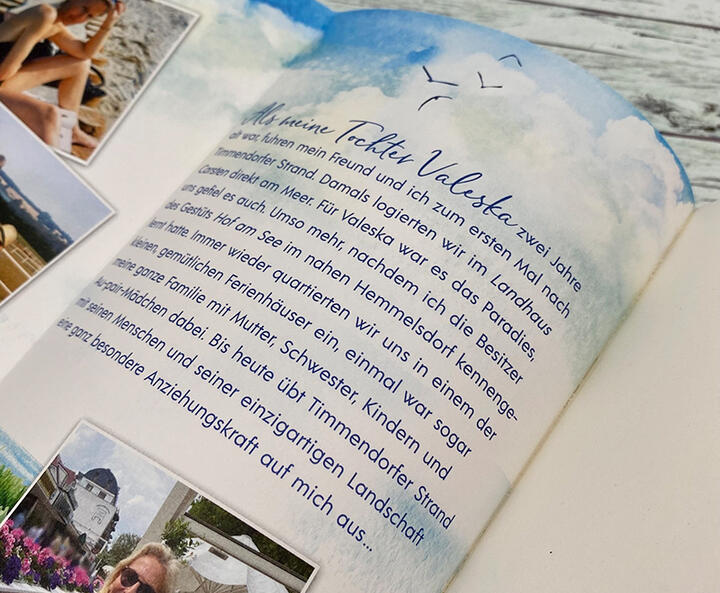 Als meine Tochter Valeska zwei Jahre
alt war, fuhren mein Freund und ich zum ersten Mal nach
Timmendorfer Strand. Damals logierten wir im Landhaus
Carsten direkt am Meer. Für Valeska war es das Paradies,
uns gefiel es auch. Umso mehr, nachdem ich die Besitzer
des Gestüts Hof am See im nahen Hemmelsdorf kennenge-
lernt hatte. Immer wieder quartierten wir uns in einem der
kleinen, gemütlichen Ferienhäuser ein, einmal war sogar
meine ganze Familie mit Mutter, Schwester, Kindern und
Au-pair-Mädchen dabei. Bis heute übt Timmendorfer Strand
mit seinen Menschen und seiner einzigartigen Landschaft
eine ganz besondere Anziehungskraft auf mich aus...